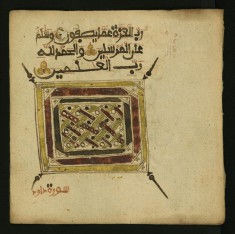 رب العزة عما يصفون وسلم
على المرسلين والحمد لله
رب العلمين
سورة داود